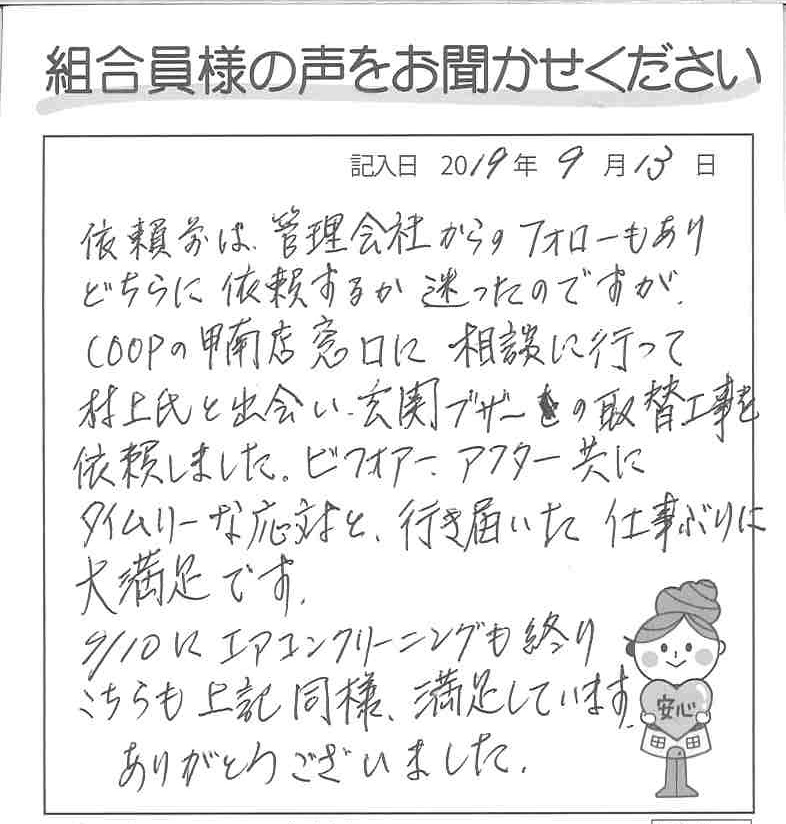 組合員様の声をお聞かせください
記入日 2019年 9月13日
依頼前は、管理会社からのフォローもあり
どちらに依頼するか迷ったのですが、
COOPの甲南店窓口に相談に行って
村上氏と出会い、玄関ブザーの取替工事を
依頼しました。ビフォアー、アフター共に
タイムリーな応対と、行き届いた仕事ぶりに
大満足です。
9/10にエアコンクリーニングも終り
こちらも上記同様、満足しています。
ありがとうございました。
安心